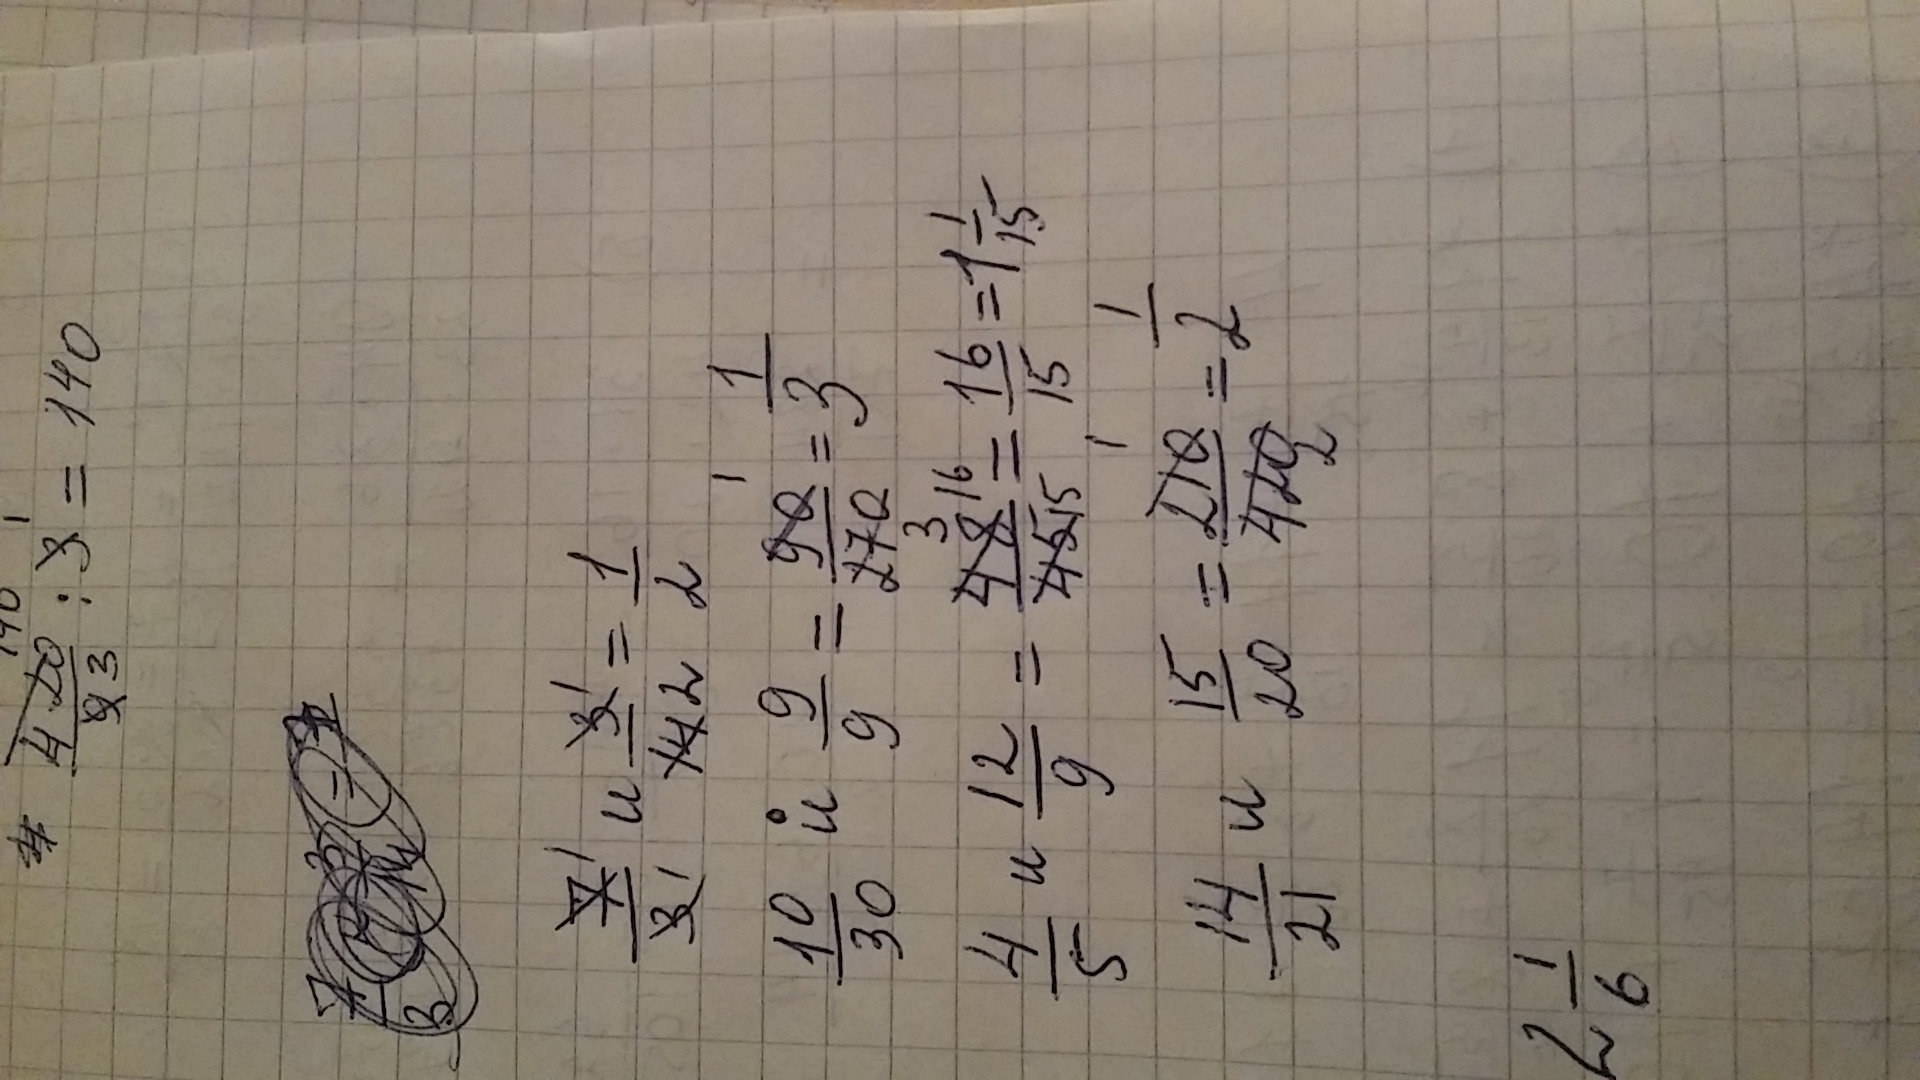 # 420/93 : 3 = 140
7/3 и 3/14 2 = 1/2
10/30 и 9/9 = 90/270 = 1/3
4/5 и 12/9 = 48/45 = 16/15 = 1 1/15
14/21 и 15/20 = 210/420 = 1/2
2 1/6